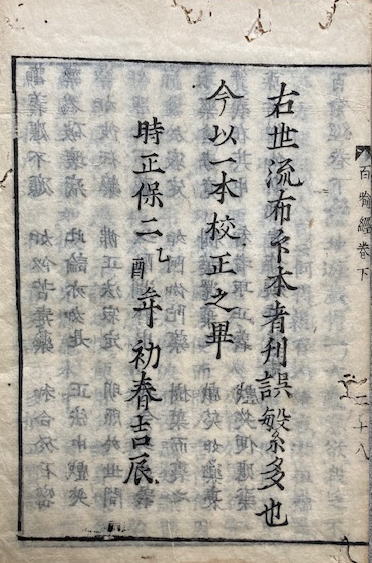 百喻經卷下
二十八
右世流布印本者刋誤繁多也
今以一本校正之畢
時正保二乙酉年初春吉辰